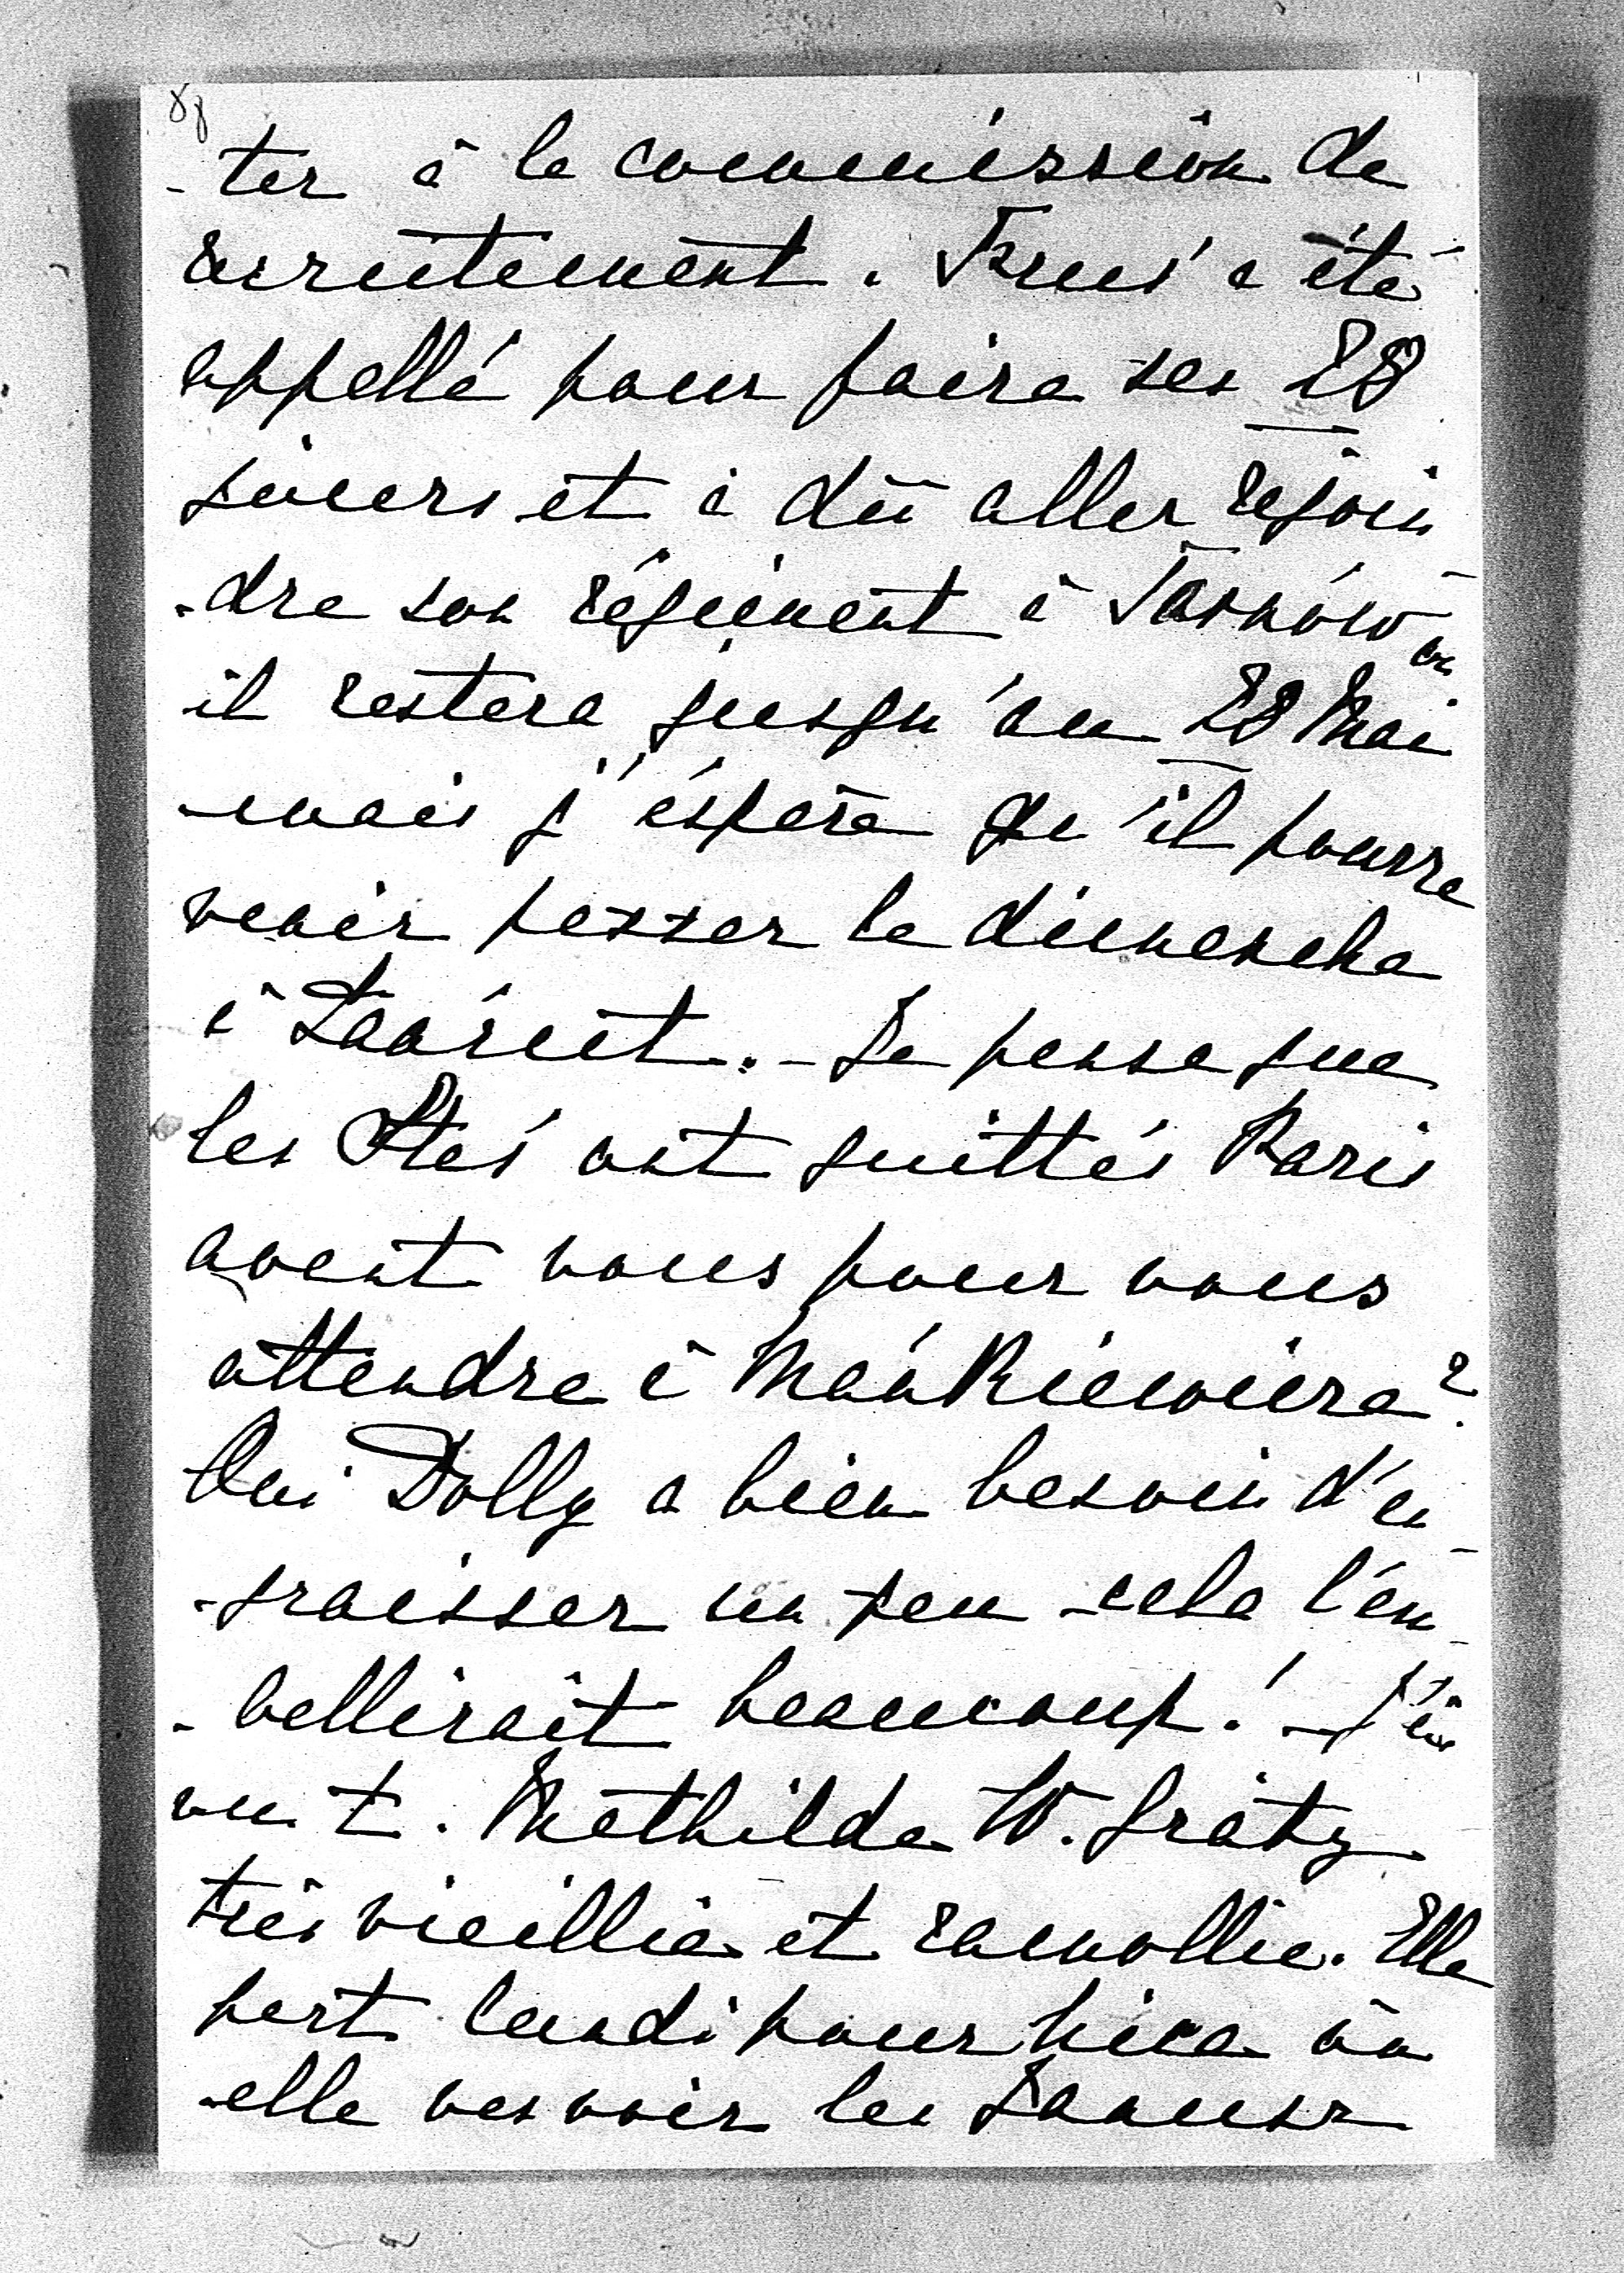 88
-ter à la commission de
recrutement. Krus' a été
appellé pour faire ses 28
jours et a dû aller rejoin
-dre son régiment à Tarnów où
il restera jusqu'au 28 Mai
-mais j'éspère qu'il pourra
venir passer le dimanche
à Łańcut. - Je pense que
les Stes' ont quittés Paris
avant vous pour vous
attendre à Mańkiewicze?
Oui Dolly a bien besoin d'en-
-graisser un peu - cela l'em-
-bellirait beaucoup! - J'ai
vu t. Mathilde W. Grätz
très vieillie et ramollie. Elle
part lundi pour Nice où
-elle va voir les